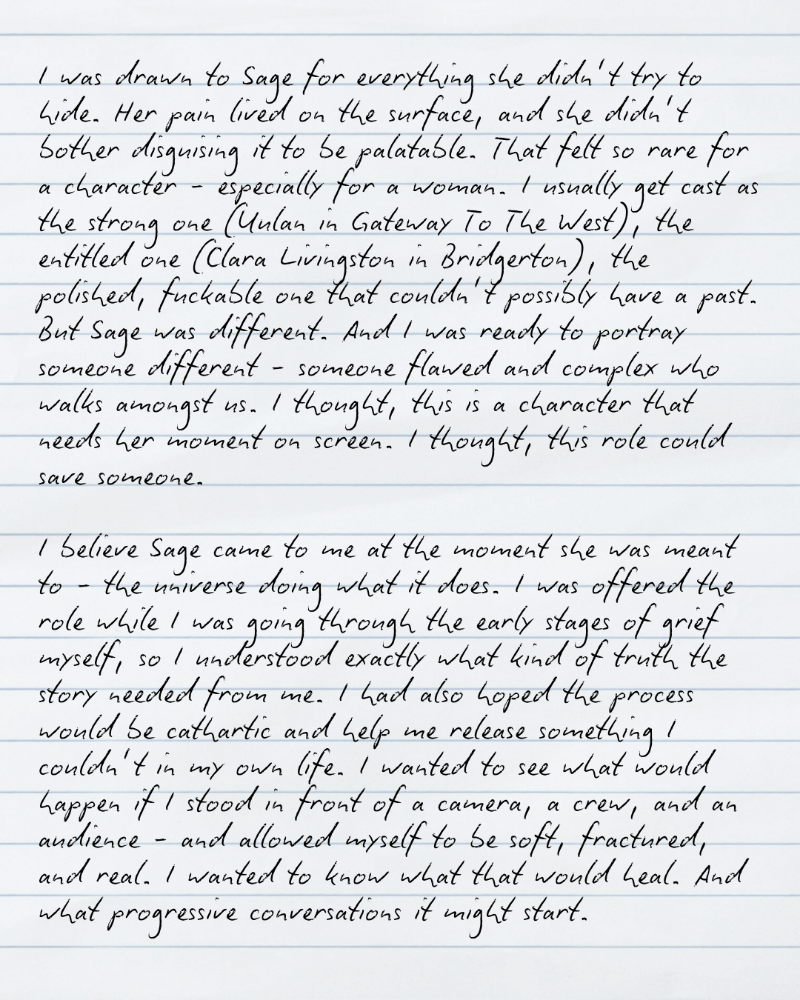 I was drawn to Sage for everything she didn't try to
hide. Her pain lived on the surface, and she didn't
bother disguising it to be palatable. That felt so rare for
a character - especially for a woman. I usually get cast as
the strong one (Yulan in Gateway To The West), the
entitled one (Clara Livingston in Bridgerton), the
polished, fuckable one that couldn't possibly have a past.
But Sage was different. And I was ready to portray
someone different - someone flawed and complex who
walks amongst us. I thought, this is a character that
needs her moment on screen. I thought, this role could
save someone.

I believe Sage came to me at the moment she was meant
to - the universe doing what it does. I was offered the
role while I was going through the early stages of grief
myself, so I understood exactly what kind of truth the
story needed from me. I had also hoped the process
would be cathartic and help me release something I
couldn't in my own life. I wanted to see what would
happen if I stood in front of a camera, a crew, and an
audience - and allowed myself to be soft, fractured,
and real. I wanted to know what that would heal. And
what progressive conversations it might start.